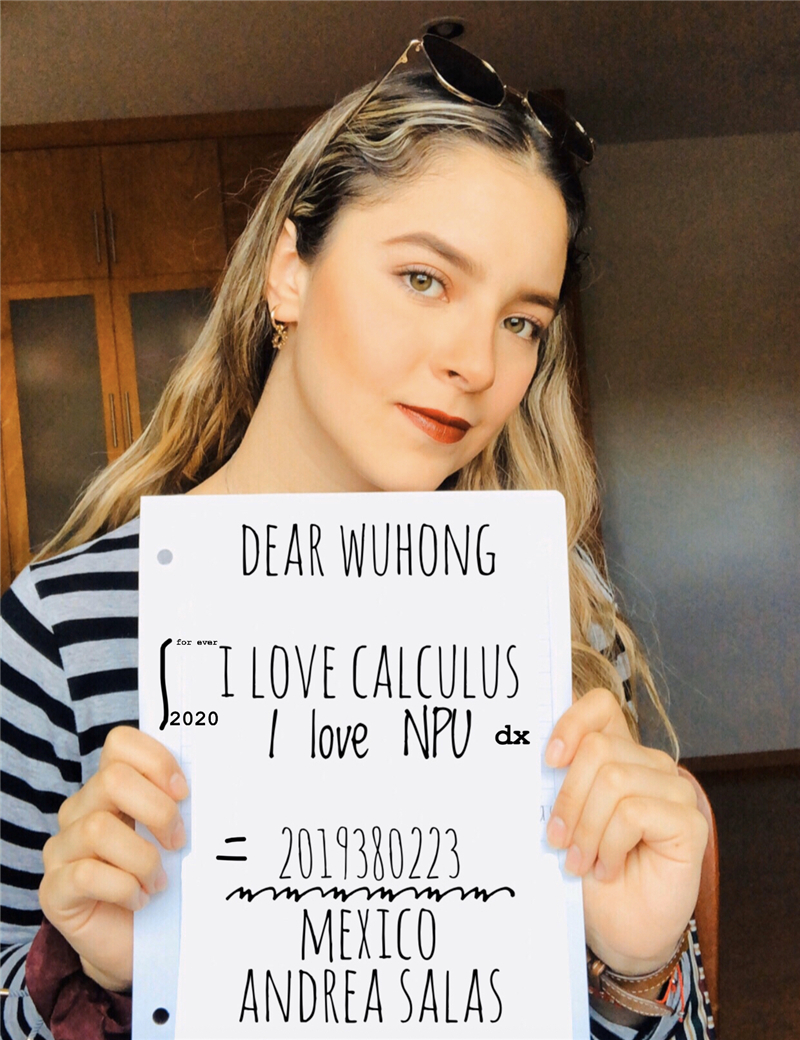 DEAR WUHONG
∫ for ever
I LOVE CALCULUS
2020
I love NPU dx
= 2019380223
MEXICO
ANDREA SALAS